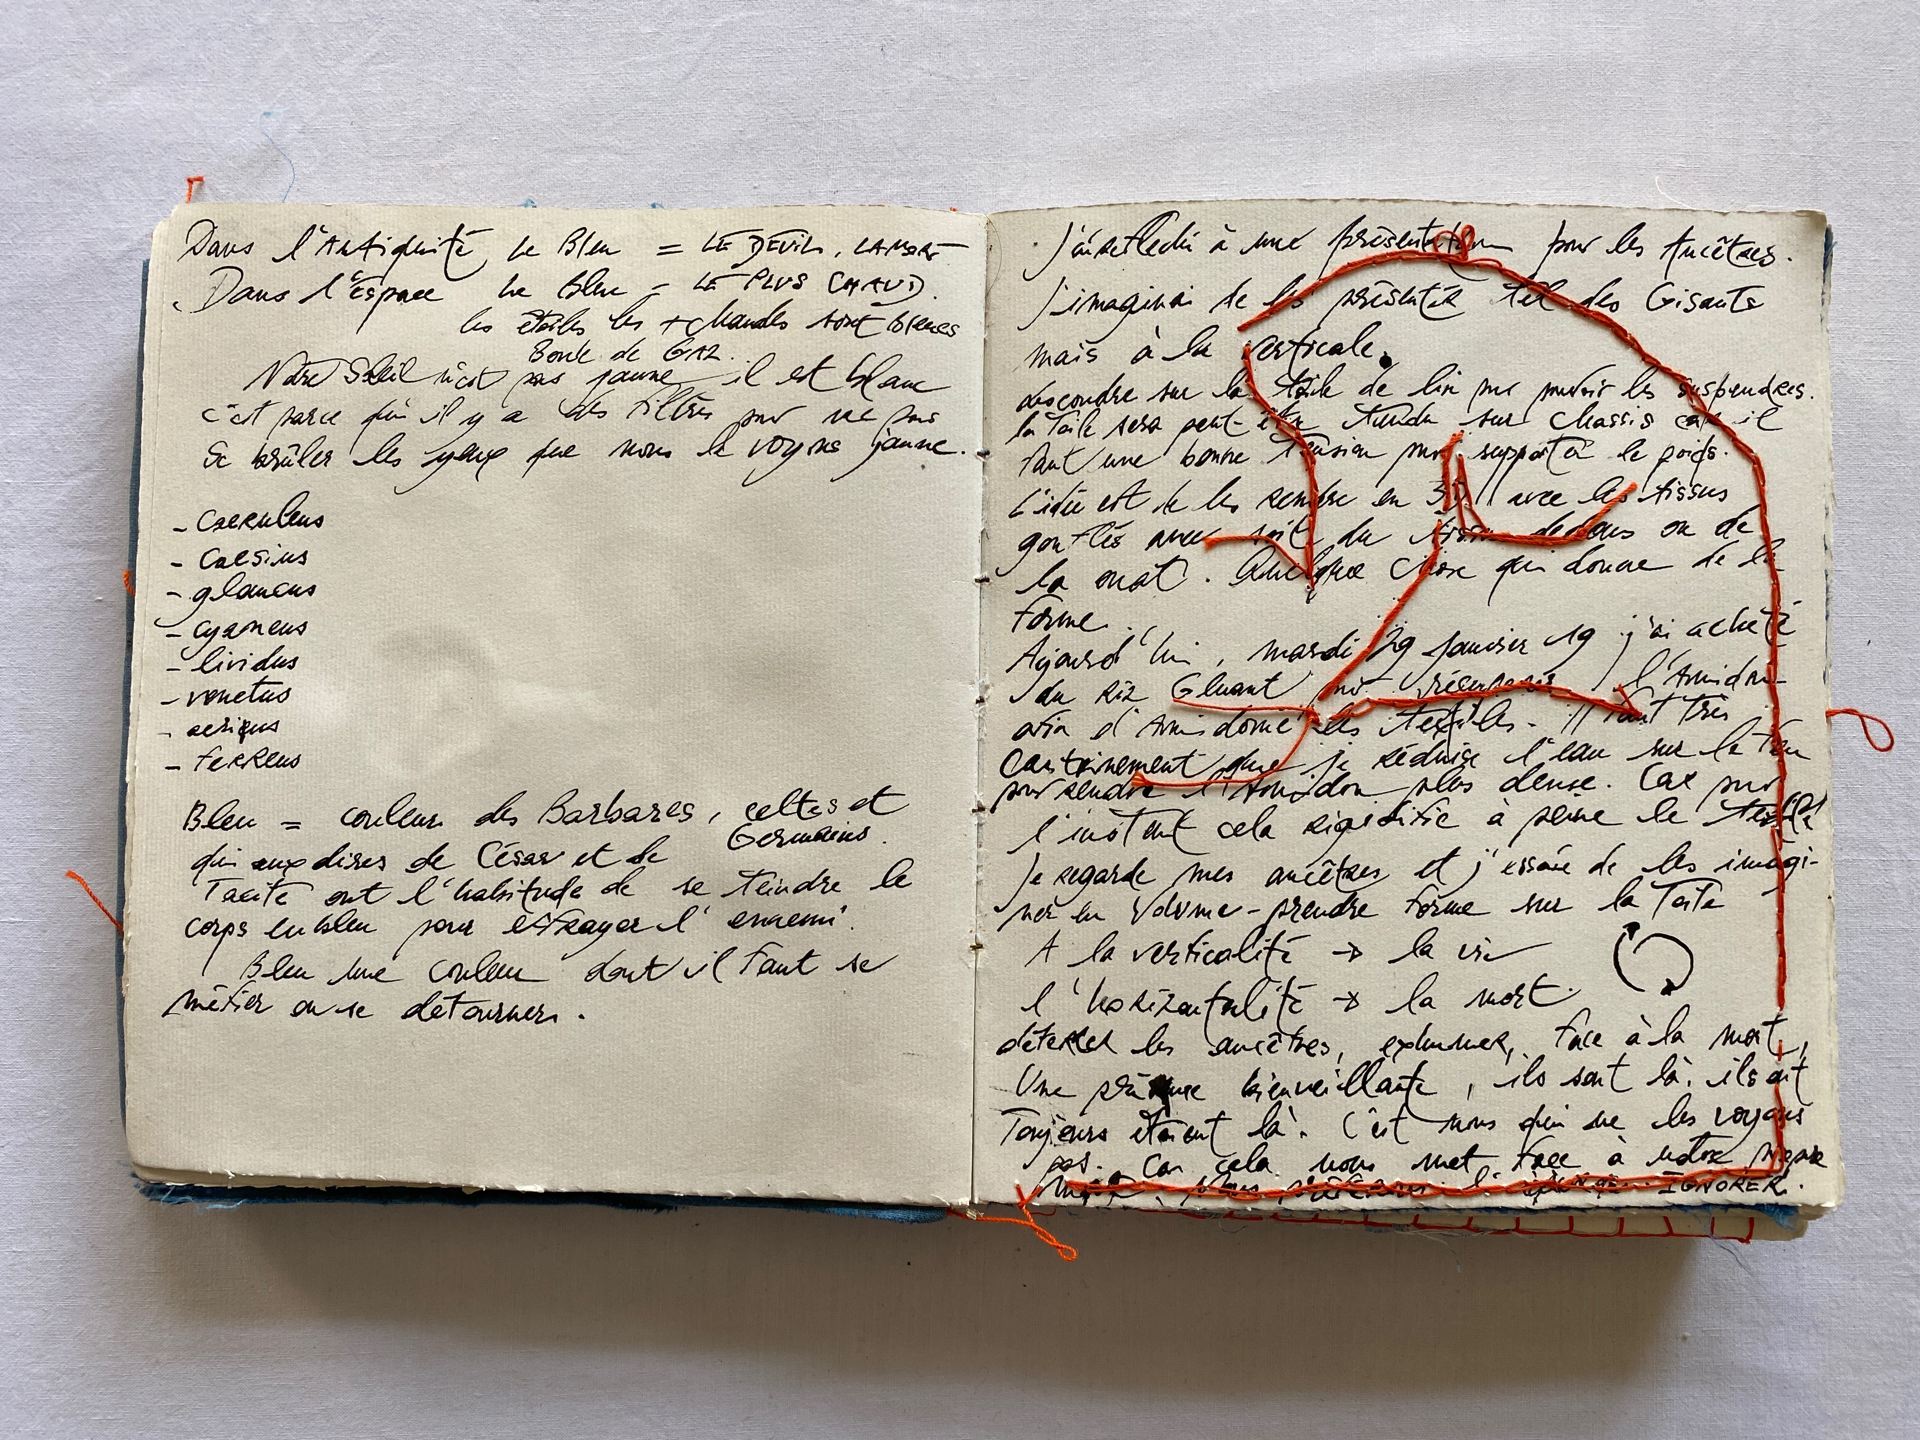 Dans l'Antiquité, Le Bleu = LE DEUIL, LA MORT
Dans l'Espace Le Bleu = LE PLUS CHAUD.
les étoiles les + chaudes sont bleues
Boule de GAZ.
Notre Soleil n'est pas jaune il est blanc
c'est parce qu'il y a des filtres pour ne pas
se brûler les yeux que nous le voyons jaune.
- caeruleus
- caesius
- glaucus
- cyaneus
- lividus
- venetus
- aerius
- ferreus
Bleu = couleur des Barbares, celtes et
Germains.
qui aux dires de César et de
Tacite ont l'habitude de se teindre le
corps en bleu pour effrayer l'ennemi.
Bleu une couleur dont il faut se
méfier ou se détourner.
J'ai réfléchi à une présentation pour les Ancêtres.
J'imaginai de les présenter tel des Gisants
mais à la verticale.
descondre sur la toile de lin pour pouvoir les suspendres.
la toile sera peut-être tendu sur chassis car il
faut une bonne tension pour supporter le poids.
L'idée est de les rendre en 3D avec les tissus
gonflés avec soit du tissu dedans ou de
la ouat. Quelque chose qui donne de la
forme.
Aujourd'hui, mardi 29 janvier 19 j'ai acheté
du riz Gluant pour l'Amidon
afin d'Amidonné les textiles. Il faut très
certainement que je réduise l'eau sur le feu
pour rendre l'Amidon plus dense. Car pour
l'instant cela rigidifie à peine le textile
Je regarde mes ancêtres et j'essaie de les imagi-
ner en volume - prendre forme sur la toile
A la verticalité → la vie
l'horizontalité → la mort.
déterrer les ancêtres, exhumer, face à la mort,
Une bienveillante, ils sont là. ils ont
Toujours étaient là. C'est nous qui ne les voyons
pas. Car cela nous met face à notre propre
mort, nous préférons l' IGNORER.